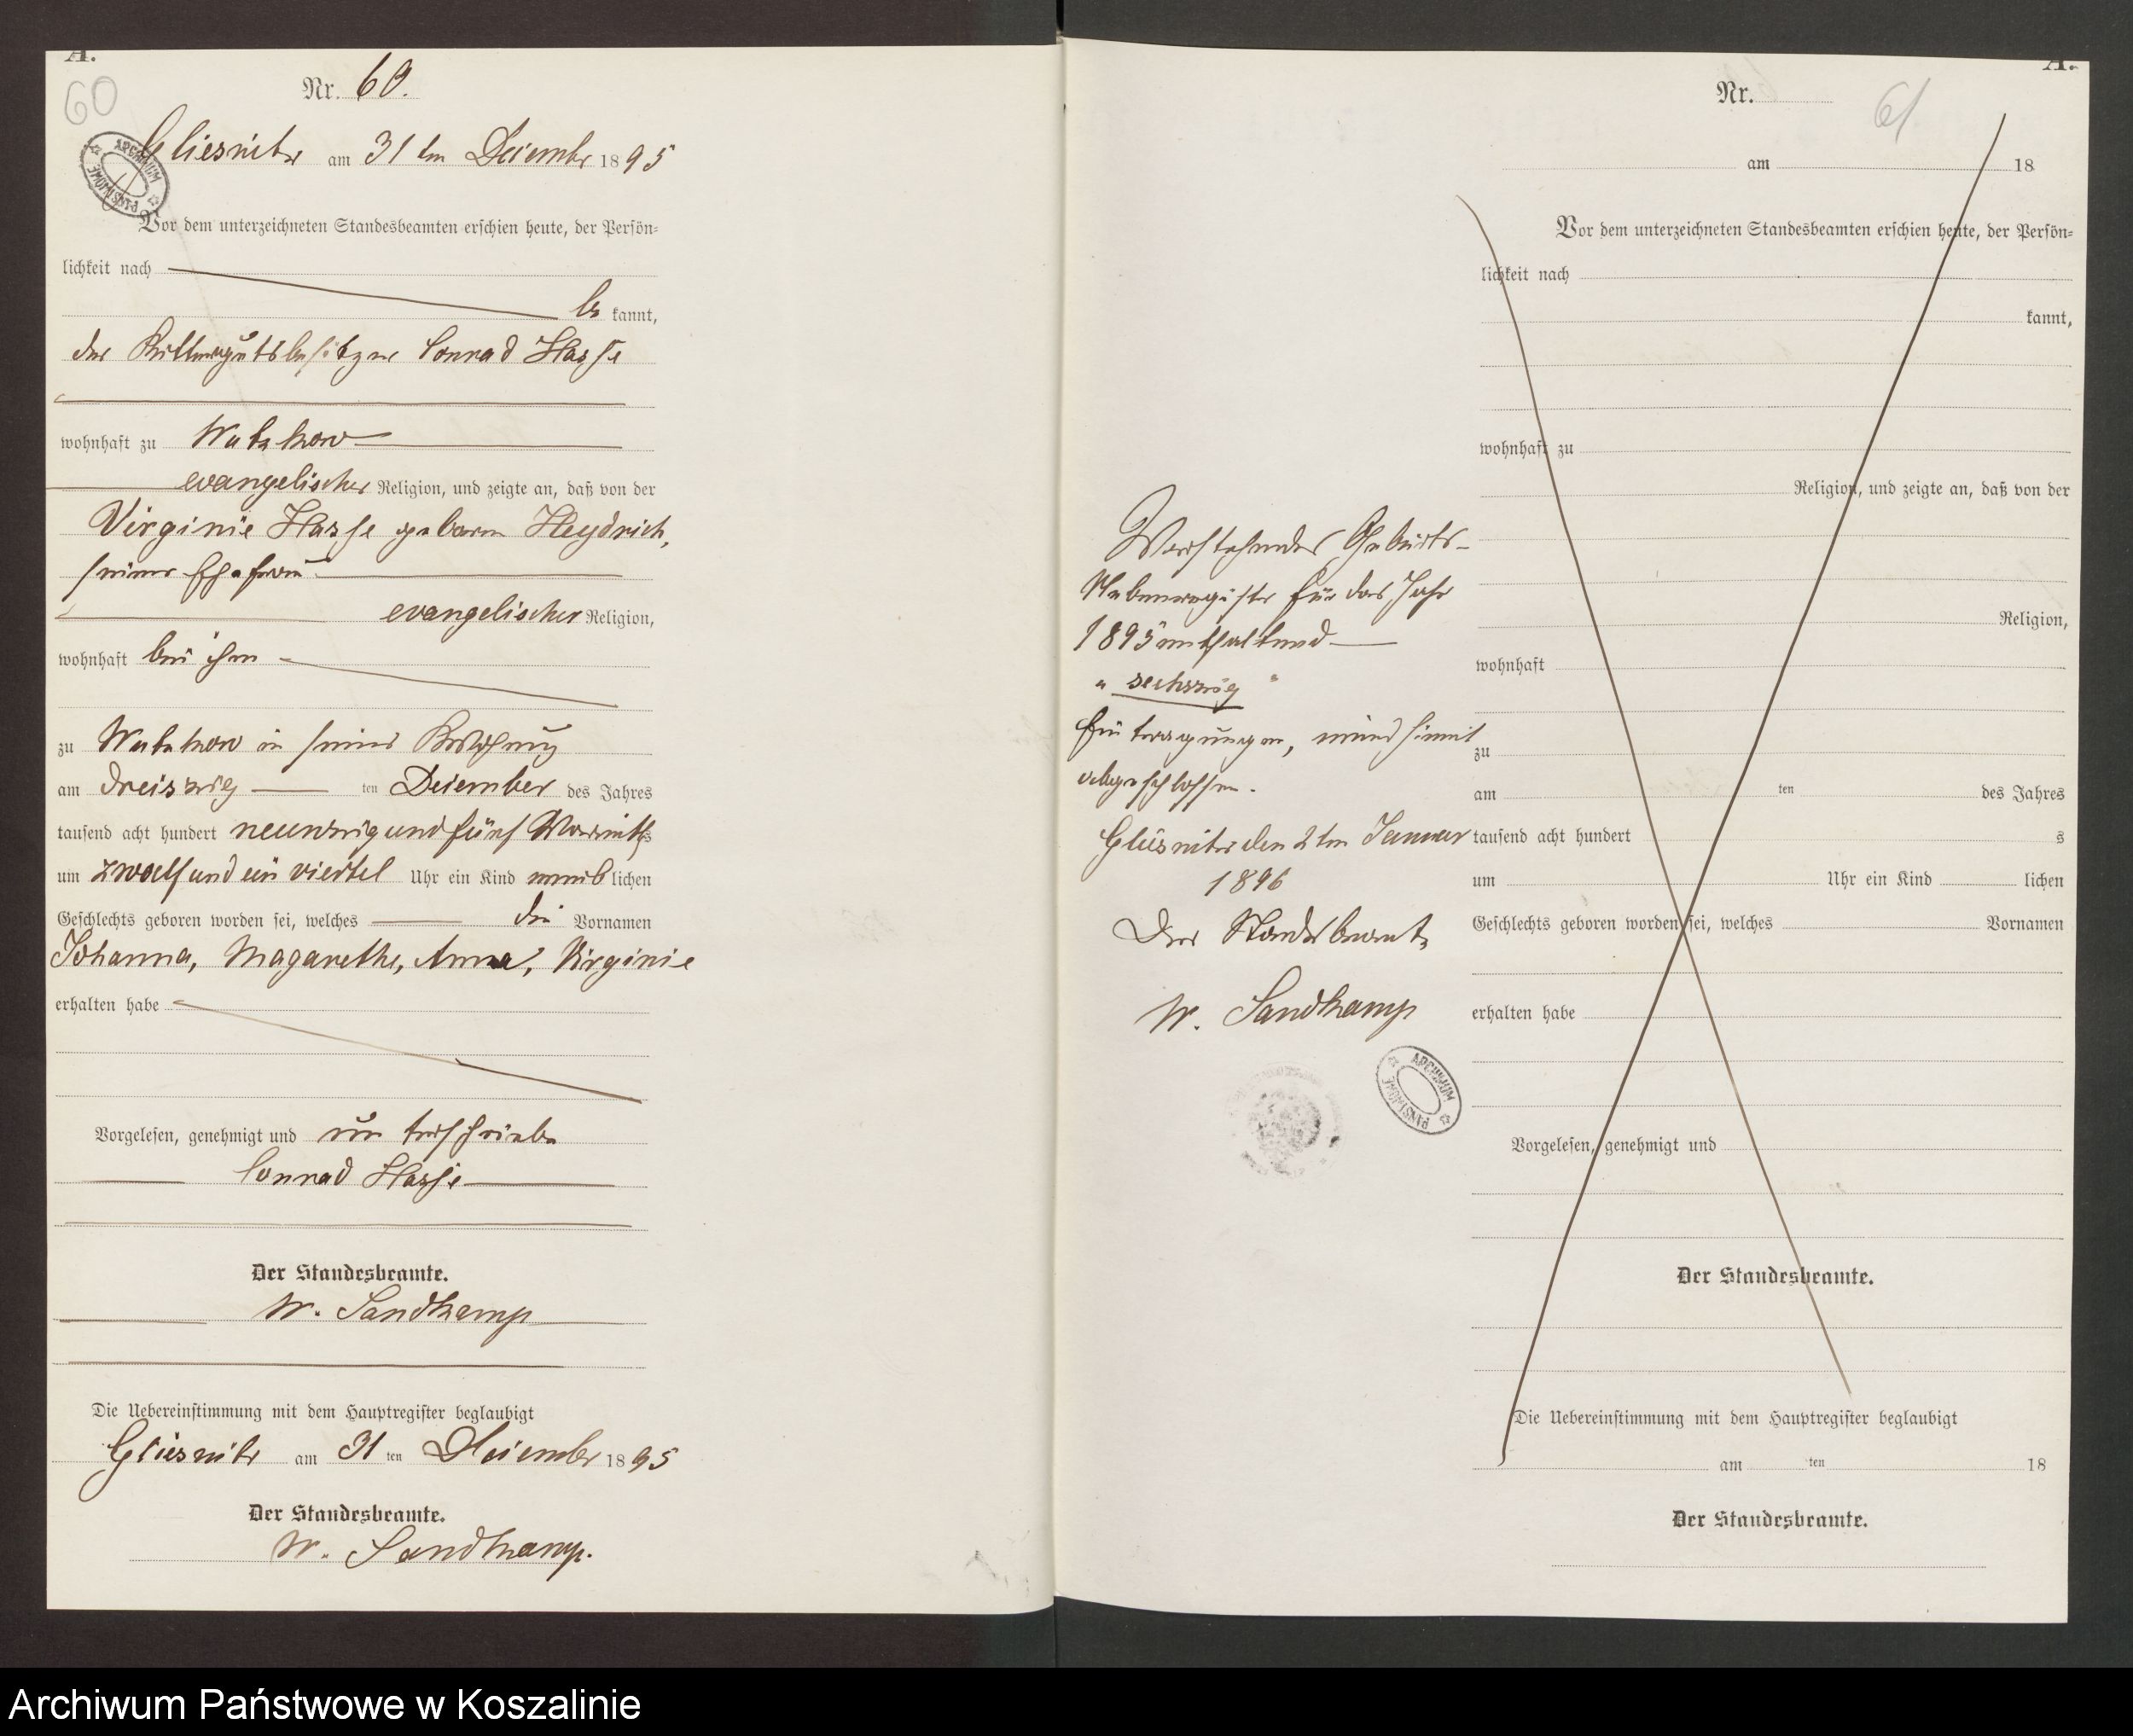 A.
60
Nr. 60.
Gliesnitz am 31 ten Dezember 1895
ARCHIWUM PAŃSTWOWE
Vor dem unterzeichneten Standesbeamten erschien heute, der Persön-
lichkeit nach
be kannt,
der Rittergutsbesitzer Conrad Hasse
wohnhaft zu Wutzkow
evangelischer Religion, und zeigte an, daß von der
Virginie Hasse geboren Heydrich,
seiner Ehefrau
evangelischer Religion,
wohnhaft bei ihm
zu Wutzkow in seiner Wohnung
am dreiszig ten Dezember des Jahres
tausend acht hundert neunzig und fünf Vormittags
um zwoelf und ein viertel Uhr ein Kind weib lichen
Geschlechts geboren worden sei, welches die Vornamen
Johanna, Magarethe, Anna, Virginie
erhalten habe
Vorgelesen, genehmigt und unterschrieben
Conrad Hasse
Der Standesbeamte.
W. Sandkamp
Die Uebereinstimmung mit dem Hauptregister beglaubigt
Gliesnitz am 31 ten Dezember 1895
Der Standesbeamte.
W. Sandkamp.
Vorstehendes Geburts-
Nebenregister für das Jahr
1895 enthaltend
"sechszig"
Eintragungen, wird hiermit
abgeschlossen.
Gliesnitz den 2ten Januar
1896
Der Standesbeamte
W. Sandkamp
ARCHIWUM PAŃSTWOWE
A.
Nr.
61
am 18
Vor dem unterzeichneten Standesbeamten erschien heute, der Persön-
lichkeit nach
kannt,
wohnhaft zu
Religion, und zeigte an, daß von der
Religion,
wohnhaft
zu
am ten des Jahres
tausend acht hundert s
um Uhr ein Kind lichen
Geschlechts geboren worden sei, welches Vornamen
erhalten habe
Vorgelesen, genehmigt und
Der Standesbeamte.
Die Uebereinstimmung mit dem Hauptregister beglaubigt
am ten 18
Der Standesbeamte.
Archiwum Państwowe w Koszalinie